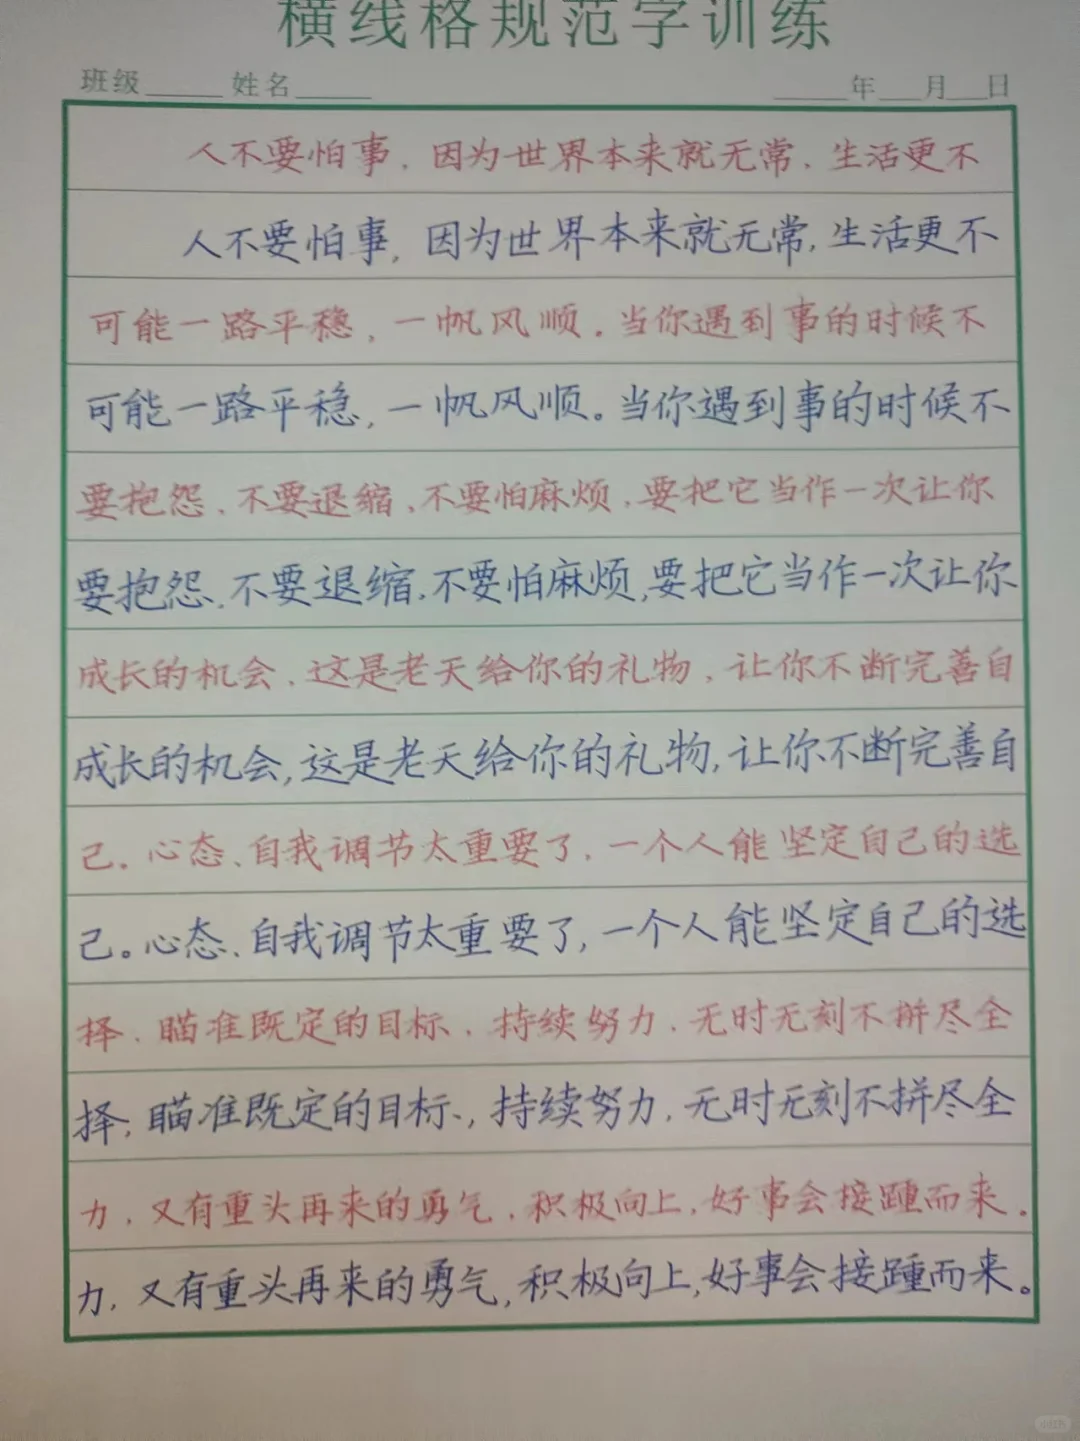 横线格规范字训练
班级 姓名 年 月 日
人不要怕事，因为世界本来就无常，生活更不
人不要怕事，因为世界本来就无常，生活更不
可能一路平稳，一帆风顺。当你遇到事的时候不
可能一路平稳，一帆风顺。当你遇到事的时候不
要抱怨、不要退缩、不要怕麻烦，要把它当作一次让你
要抱怨、不要退缩、不要怕麻烦，要把它当作一次让你
成长的机会，这是老天给你的礼物，让你不断完善自
成长的机会，这是老天给你的礼物，让你不断完善自
己。心态、自我调节太重要了，一个人能坚定自己的选
己。心态、自我调节太重要了，一个人能坚定自己的选
择，瞄准既定的目标，持续努力，无时无刻不拼尽全
择，瞄准既定的目标、，持续努力，无时无刻不拼尽全
力，又有重头再来的勇气，积极向上，好事会接踵而来。
力，又有重头再来的勇气，积极向上，好事会接踵而来。
小红书